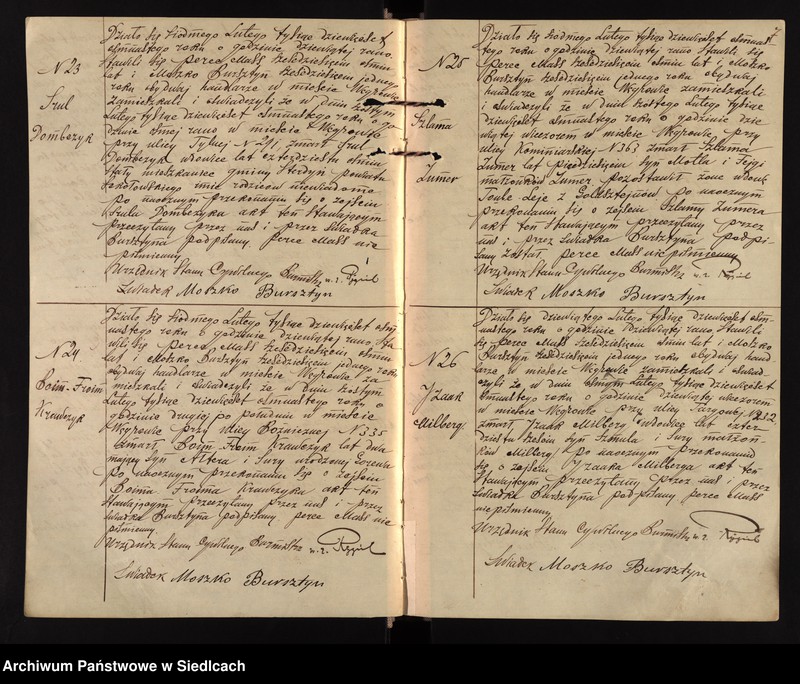 N 23
Srul
Dombczyk
Działo się siódmego Lutego tysiąc dziewięćset
osmnastego roku o godzinie dziewiątej rano
stawili się Perec Mały sześćdziesięciu ośmiu
lat i Moszko Bursztyn sześćdziesięciu jednego
roku obydwaj handlarze w mieście Węgrowie
zamieszkali i świadczyli że w dniu szóstym
Lutego tysiąc dziewięćset osmnastego roku o go-
dzinie ósmej rano w mieście Węgrowie
przy ulicy N 291, zmarł Srul
Dombczyk wdowiec lat czterdzieści ośm
stały mieszkaniec gminy Sterdyń powiatu
Sokołowskiego imie rodziców niewiadome
Po naocznym przekonaniu się o zejściu
Srula Dombczyka akt ten stawającym
przeczytany przez nas i przez świadka
Bursztyna podpisany Perec Mały nie
piśmienny
Urzędnik Stanu Cywilnego Burmistrz
Świadek Moszko Bursztyn
N 24
Boim-Froim
Krawczyk
Działo się siódmego Lutego tysiąc dziewięćset ośm-
nastego roku o godzinie dziewiątej rano, sta-
wili się Perec Mały sześćdziesięciu ośmiu
lat i Moszko Bursztyn sześćdziesięciu jednego roku
obydwaj handlarze w mieście Węgrowie za-
mieszkali i świadczyli że w dniu szóstym
Lutego tysiąc dziewięćset osmnastego roku o
godzinie drugiej po południu w mieście
Węgrowie przy ulicy Bożnicznej N 335
zmarł Boim Froim Krawczyk lat dwa
mający syn Altera i Sury urodzonej
Po naocznym przekonaniu się o zejściu
Boima Froima Krawczyka akt ten
stawającym przeczytany przez nas i przez
świadka Bursztyna podpisany Perec Mały nie
piśmienny.
Urzędnik Stanu Cywilnego Burmistrz
Świadek Moszko Bursztyn
N 25
Szlama
Zumer
Działo się siódmego Lutego tysiąc dziewięćset ośmnas-
tego roku o godzinie dziewiątej rano stawili się
Perec Mały sześćdziesięciu ośmiu lat i Moszko
Bursztyn sześćdziesięciu jednego roku obydwaj
handlarze w mieście Węgrowie zamieszkali
i świadczyli że w dniu szóstego Lutego tysiąc
dziewięćset osmnastego roku o godzinie dzie-
wiątej wieczorem w mieście Węgrowie przy
ulicy Kominiarskiej N 363 zmarł Szlama
Zumer lat pięćdziesięciu syn Motla i Fejgi
małżonków Zumer pozostawił żonę wdowę
z Goldsztejnów Po naocznym
przekonaniu się o zejściu Szlamy Zumera
akt ten stawającym przeczytany przez
nas i przez świadka Bursztyna podpi-
sany został Perec Mały nie piśmienny
Urzędnik Stanu Cywilnego Burmistrz
Świadek Moszko Bursztyn
N 26
Izaak
Milberg.
Działo się dziewiątego Lutego tysiąc dziewięćset ośm-
nastego roku o godzinie dziewiątej rano, Stawili
się Perec Mały sześćdziesięciu ośmiu lat i Moszko
Bursztyn sześćdziesięciu jednego roku obydwaj hand-
larze w mieście Węgrowie zamieszkali i świad-
czyli że w dniu ósmym Lutego tysiąc dziewięćset
osmnastego roku o godzinie dziewiątej wieczorem
w mieście Węgrowie przy ulicy Targowej N 212.
zmarł Izaak Milberg wdowiec lat czter-
dzieści sześciu syn Szmula i Sury małżon-
ków Milberg Po naocznym przekonaniu
się o zejściu Izaaka Milberga akt ten
stawającym przeczytany przez nas i przez
świadka Bursztyna podpisany Perec Mały
nie piśmienny
Urzędnik Stanu Cywilnego Burmistrz
Świadek Moszko Bursztyn
Archiwum Państwowe w Siedlcach